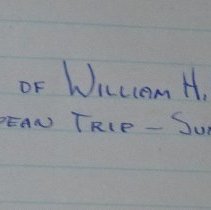 OF WILLIAM H.
PEAN TRIP - SU